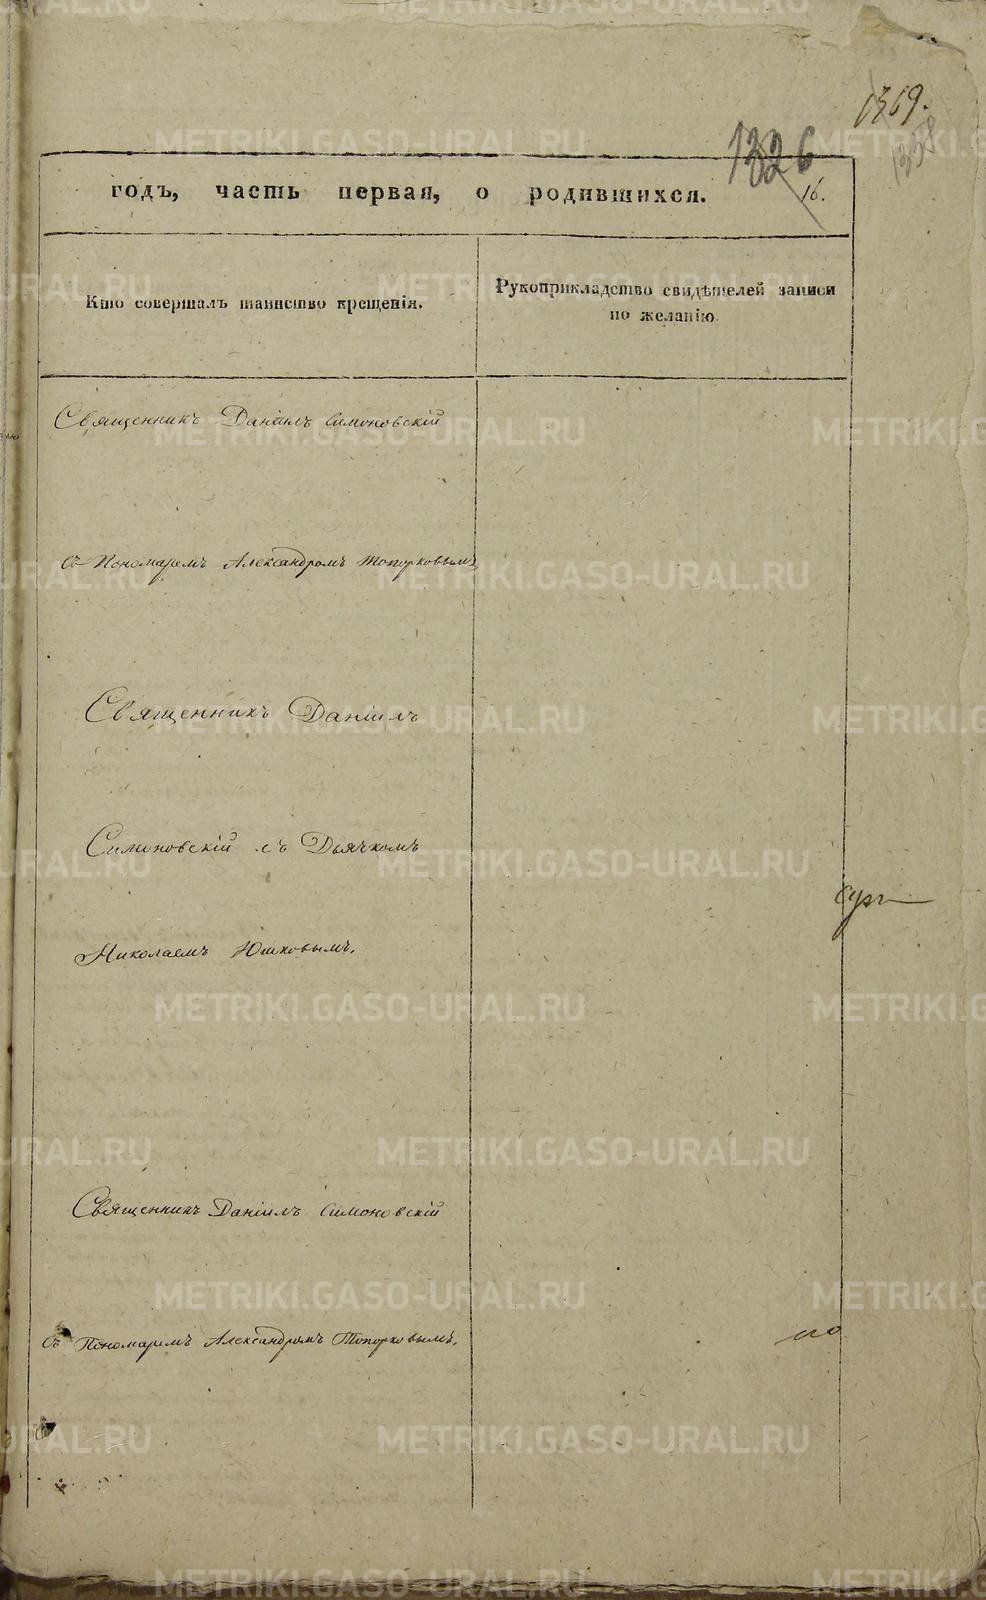 1369.
1326
1358
16.
годъ, часть первая, о родившихся.
Кто совершалъ таинство крещенія.
Рукоприкладство свидѣтелей записи
по желанію
Священникъ Даніилъ Симоновскій
съ Пономаремъ Александромъ Топорковымъ
Священникъ Даніилъ
Симоновскій съ Дьячкомъ
Николаемъ Юшковымъ.
Священникъ Даніилъ Симоновскій
съ Пономаремъ Александромъ Топорковымъ.
METRIKI.GASO-URAL.RU